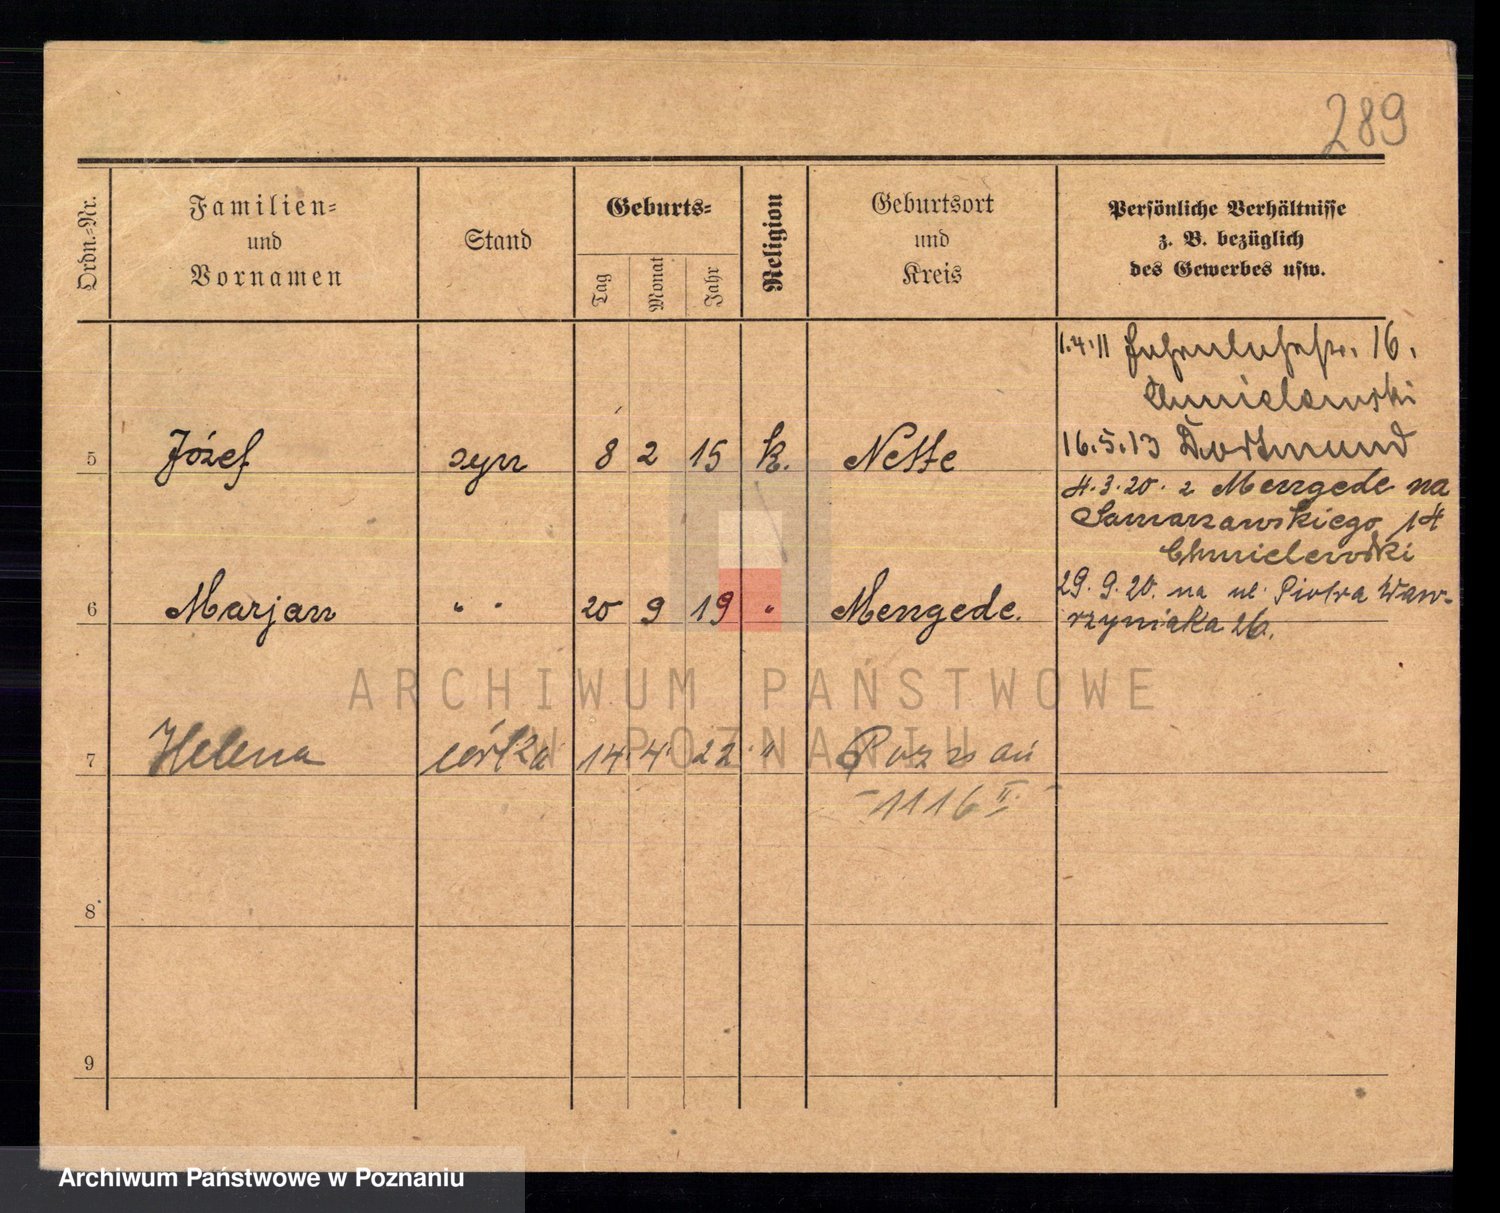 289
Ordn.-Nr.
Familien-
und
Vornamen
Stand
Geburts-
Tag
Monat
Jahr
Religion
Geburtsort
und
Kreis
Persönliche Verhältnisse
z. B. bezüglich
des Gewerbes usw.
1.4.11 16.
Chmielewski
16.5.13 Dortmund
5 Józef syn 8 2 15 k. Nette
4.3.20. z Mengede na
Samarzewskiego 14
Chmielewski
6 Marjan " " 20 9 19 " Mengede.
29.9.20. na ul. Piotra Waw-
rzyniaka 26.
ARCHIWUM PAŃSTWOWE
W POZNANIU
7 Helena córka 14. 4. 22 " Poznań
- 1116 II. -
8
9
Archiwum Państwowe w Poznaniu